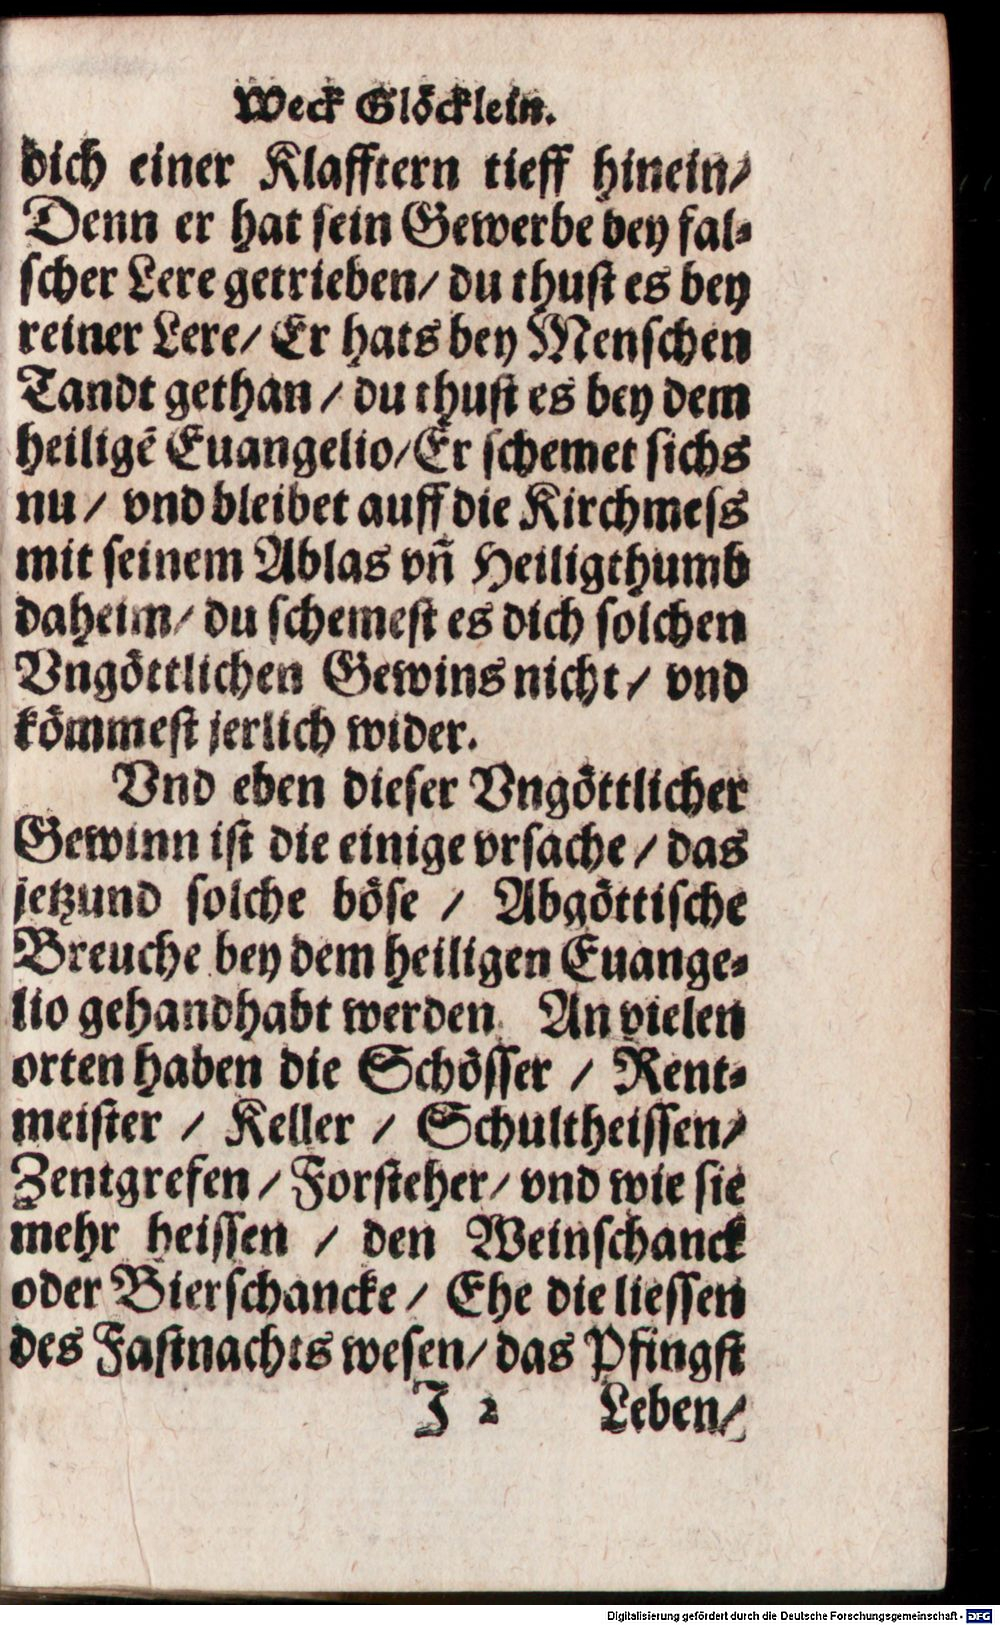 Weck Glöcklein.
dich einer Klafftern tieff hinein/
Denn er hat sein Gewerbe bey fal-
scher Lere getrieben/ du thust es bey
reiner Lere/ Er hats bey Menschen
Tandt gethan / du thust es bey dem
heiligē Euangelio/ Er schemet sichs
nu / vnd bleibet auff die Kirchmess
mit seinem Ablas vñ Heiligthumb
daheim/ du schemest es dich solchen
Vngöttlichen Gewins nicht / vnd
kömmest jerlich wider.
Vnd eben dieser Vngöttlicher
Gewinn ist die einige vrsache / das
jetzund solche böse / Abgöttische
Breuche bey dem heiligen Euange-
lio gehandhabt werden. An vielen
orten haben die Schösser / Rent-
meister / Keller / Schultheissen/
Zentgrefen / Forsteher/ vnd wie sie
mehr heissen / den Weinschanck
oder Bierschancke / Ehe die liessen
des Fastnachts wesen/ das Pfingst
J 2 Leben/
Digitalisierung gefördert durch die Deutsche Forschungsgemeinschaft - DFG